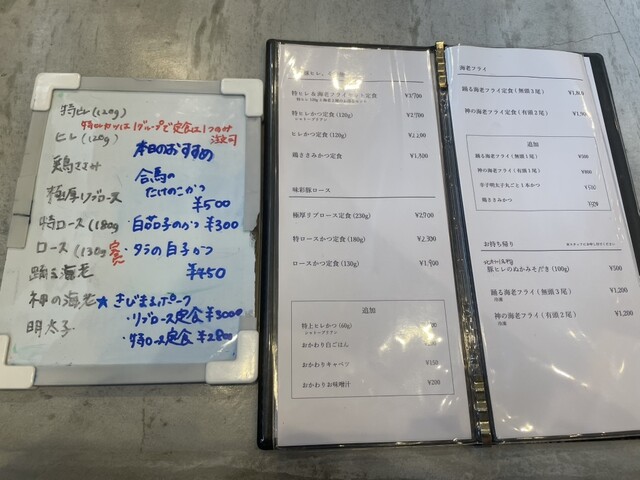 特ヒレ(120g)
特ロースかつは1グループで定食は1つのみ
注文可
ヒレ(120g)
本日のおすすめ
鶏ささみ
合馬の
たけのこかつ
¥500
極厚リブロース
特ロース(180g
・白茄子のかつ ¥300
ロース(130g
完売
・タラの白子かつ
¥450
踊る海老
神の海老
★きびまるポーク
・リブロース定食 ¥3000
明太子
・特ロース定食 ¥2800
特ヒレ&海老フライセット定食
¥2,700
特ヒレかつ定食(120g)
¥2,700
シャトーブリアン
ヒレかつ定食(120g)
鶏ささみかつ定食
味彩豚ロース
極厚リブロース定食(230g)
特ロースかつ定食(180g)
¥2,300
ロースかつ定食(130g)
¥1,900
追加
特上ヒレかつ(60g)
シャトーブリアン
おかわり白ごはん
おかわりキャベツ
¥150
おかわりお味噌汁
¥200
海老フライ
踊る海老フライ定食(無頭3尾)
神の海老フライ定食(有頭2尾)
追加
踊る海老フライ(無頭1尾)
神の海老フライ(有頭1尾)
辛子明太子丸ごと1本かつ
鶏ささみかつ
お持ち帰り
豚ヒレのぬかみそだき(100g)
¥500
踊る海老フライ(無頭3尾)
¥1,200
冷凍
神の海老フライ(有頭2尾)
¥1,200
冷凍